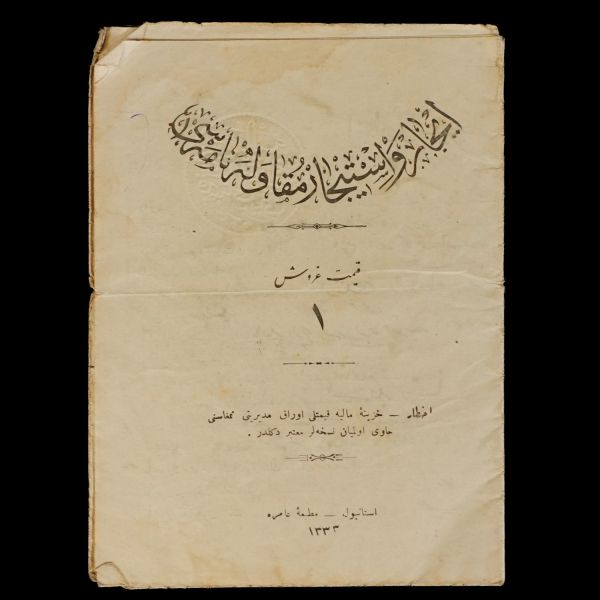 ايجار و استيجار مقاوله‌نامه‌سيدر
قيمت غروش
١
اخطار — خزينهٔ ماليه قيمتلى اوراق مديريتى تمغاسنى
حاوى اولميان نسخه‌لر معتبر دكلدر .
استانبول — مطبعهٔ عامره
١٣٣٣